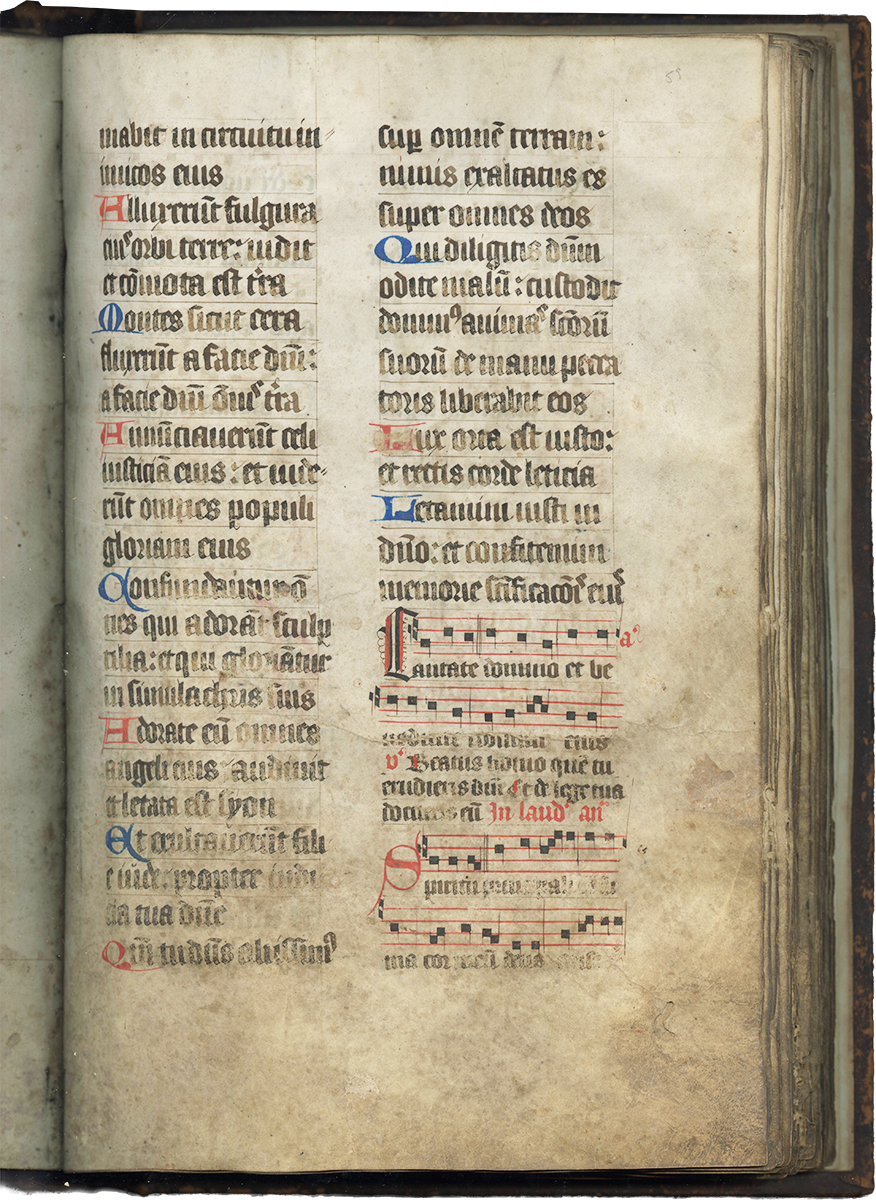 58
mabit in circuitu in
imicos eius
Alluxerūt fulgura
eiꝰ orbi terre: uidit
et cōmota est tr̄a
Montes sicut cera
fluxerūt a facie dūi:
a facie dūi ōnis tr̄a
Annūciauerūt celi
iusticiā eius: et uide
rūt omnes populi
gloriam eius
Confundantur ō
nes qui adorāt sculp
tilia: et qui gloriātur
in simulachris suis
Adorate eū omnes
angeli eius audiuit
et letata est syon
Et exultauerūt fili
e iude: propter iudi
cia tua dūe
Qm̄ tu dūs altissimꝰ
suꝑ omnē terram:
nimis exaltatus es
super omnes deos
Qui diligitis dūm
odite malū: custodit
dominꝰ animas scōrū
suorū de manu pecca
toris liberabit eos
Lux orta est iusto:
et rectis corde leticia
Letamini iusti in
dūo: et confitemini
memorie scīficacōis eiꝰ
a
Cantate domino et be
nedicite nomini eius
v̕ Beatus homo quē tu
erudieris dūe Et de lege tua
docueris eū In laudꝰ anꝰ
Spiritu principali
ma cor meū deus